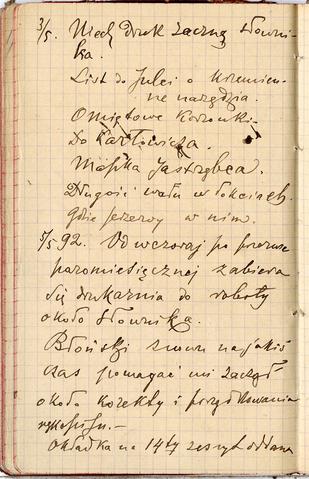 3/5. Niech druk zaczną Słowni-
ka.
List do Julci o krzemien-
ne narzędzia.
Omiętowe
Do Karłowicza.
Mapka Jastrzębca.
Długość wału w łokciach
gdzie przerwy w nim.
5/5 92. Od wczoraj po przerwie
paromiesięcznej zabiera
się drukarnia do roboty
około Słownika.
Błoński znowu na jakiś
czas pomagać mi zaczął
około korekty i porządkowania
rękopisu.—
Okładka na 14ty zeszyt oddana